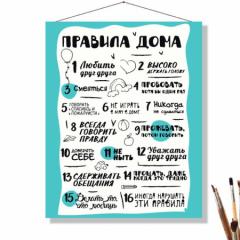 ПРАВИЛА ДОМА
1 Любить друг друга
2 ВЫСОКО ДЕРЖАТЬ ГОЛОВУ
3 Смеяться
4 ПРОБОВАТЬ ХОТЯ БЫ ОДИН РАЗ
5 ГОВОРИТЬ СПАСИБО И ПОЖАЛУЙСТА
6 НЕ ИГРАТЬ В МЯЧ В ДОМЕ
7 Никогда не сдаваться
8 ВСЕГДА ГОВОРИТЬ ПРАВДУ
9 ПРОЖЕВАТЬ, ПОТОМ ГОВОРИТЬ
10 ДОВЕРЯТЬ СЕБЕ
11 НЕ НЫТЬ
12 Уважать друг друга
13 СДЕРЖИВАТЬ ОБЕЩАНИЯ
14 ПРОЩАТЬ, ДАЖЕ КОГДА ЭТО ТРУДНО
15 Делать то, что любишь
16 ИНОГДА НАРУШАТЬ ЭТИ ПРАВИЛА